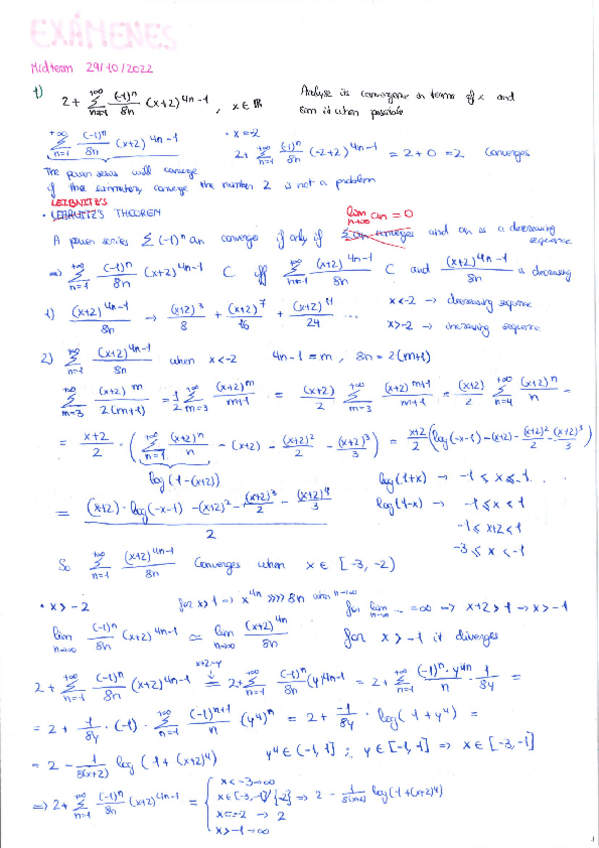 EXÁMENES
Midteam 29/10/2022
1) 2+ \sum_{n=1}^{+∞} \frac{(-1)^n}{8n} (x+2)^{4n-1}, x∈ℝ Analyse its convergence in terms of x and sum it when possible
\sum_{n=1}^{+∞} \frac{(-1)^n}{8n} (x+2)^{4n-1} • x=-2
2+ \sum_{n=1}^{+∞} \frac{(-1)^n}{8n} (-2+2)^{4n-1} = 2+0 = 2 converges
The power series will converge
if the summatory converge the number 2 is not a problem
LEIBNITZ'S
• THEOREM
A power series Σ(-1)^n an converges if only if \lim_{n→∞} an = 0 and an is a decreasing sequence
=> \sum_{n=1}^{+∞} \frac{(-1)^n}{8n} (x+2)^{4n-1} C iff \sum_{n=1}^{+∞} \frac{(x+2)^{4n-1}}{8n} C and \frac{(x+2)^{4n-1}}{8n} is decreasing
1) \frac{(x+2)^{4n-1}}{8n} → \frac{(x+2)^3}{8} + \frac{(x+2)^7}{16} + \frac{(x+2)^{11}}{24} ... x<-2 → decreasing sequence
x>-2 → increasing sequence
2) \sum_{n=1}^{+∞} \frac{(x+2)^{4n-1}}{8n} when x<-2 4n-1=m, 8n=2(m+1)
\sum_{m=3}^{+∞} \frac{(x+2)^m}{2(m+1)} = \frac{1}{2} \sum_{m=3}^{+∞} \frac{(x+2)^m}{m+1} = \frac{(x+2)}{2} \sum_{m=3}^{+∞} \frac{(x+2)^{m+1}}{m+1} = \frac{(x+2)}{2} \sum_{n=4}^{+∞} \frac{(x+2)^n}{n} =
= \frac{x+2}{2} · ( \sum_{n=1}^{+∞} \frac{(x+2)^n}{n} - (x+2) - \frac{(x+2)^2}{2} - \frac{(x+2)^3}{3} ) = \frac{x+2}{2} ( log(-x-1) - (x+2) - \frac{(x+2)^2}{2} - \frac{(x+2)^3}{3} )
log(1-(x+2))
log(1+x) → -1 ≤ x ≤ 1
= \frac{(x+2)·log(-x-1) - (x+2)^2 - \frac{(x+2)^3}{2} - \frac{(x+2)^4}{3}}{2} log(1-x) → -1 ≤ x < 1
-1 ≤ x+2 < 1
-3 ≤ x < -1
So \sum_{n=1}^{+∞} \frac{(x+2)^{4n-1}}{8n} converges when x ∈ [-3, -2)
• x>-2 for x>1 => x^{4n} >>>> 8n when n→∞ for \lim_{n→∞} ... = ∞ => x+2>1 => x>-1
\lim_{n→∞} \frac{(-1)^n}{8n} (x+2)^{4n-1} ≃ \lim_{n→∞} \frac{(x+2)^{4n}}{8n} for x>-1 it diverges
x+2=y
2+ \sum_{n=1}^{+∞} \frac{(-1)^n}{8n} (x+2)^{4n-1} = 2+ \sum_{n=1}^{+∞} \frac{(-1)^n}{8n} (y)^{4n-1} = 2+ \sum_{n=1}^{+∞} \frac{(-1)^n · y^{4n}}{n} · \frac{1}{8y} =
= 2+ \frac{1}{8y} · (-1) · \sum_{n=1}^{+∞} \frac{(-1)^{n+1}}{n} (y^4)^n = 2+ \frac{-1}{8y} · log(1+y^4) =
= 2 - \frac{1}{8(x+2)} log(1+(x+2)^4) y^4 ∈ (-1,1] ∴ y ∈ [-1,1] => x ∈ [-3,-1]
=> 2+ \sum_{n=1}^{+∞} \frac{(-1)^n}{8n} (x+2)^{4n-1} = { x<-3 → ∞
x∈[-3,-1]/{-2} → 2 - \frac{1}{8(x+2)} log(1+(x+2)^4)
x=-2 → 2
x>-1 → ∞